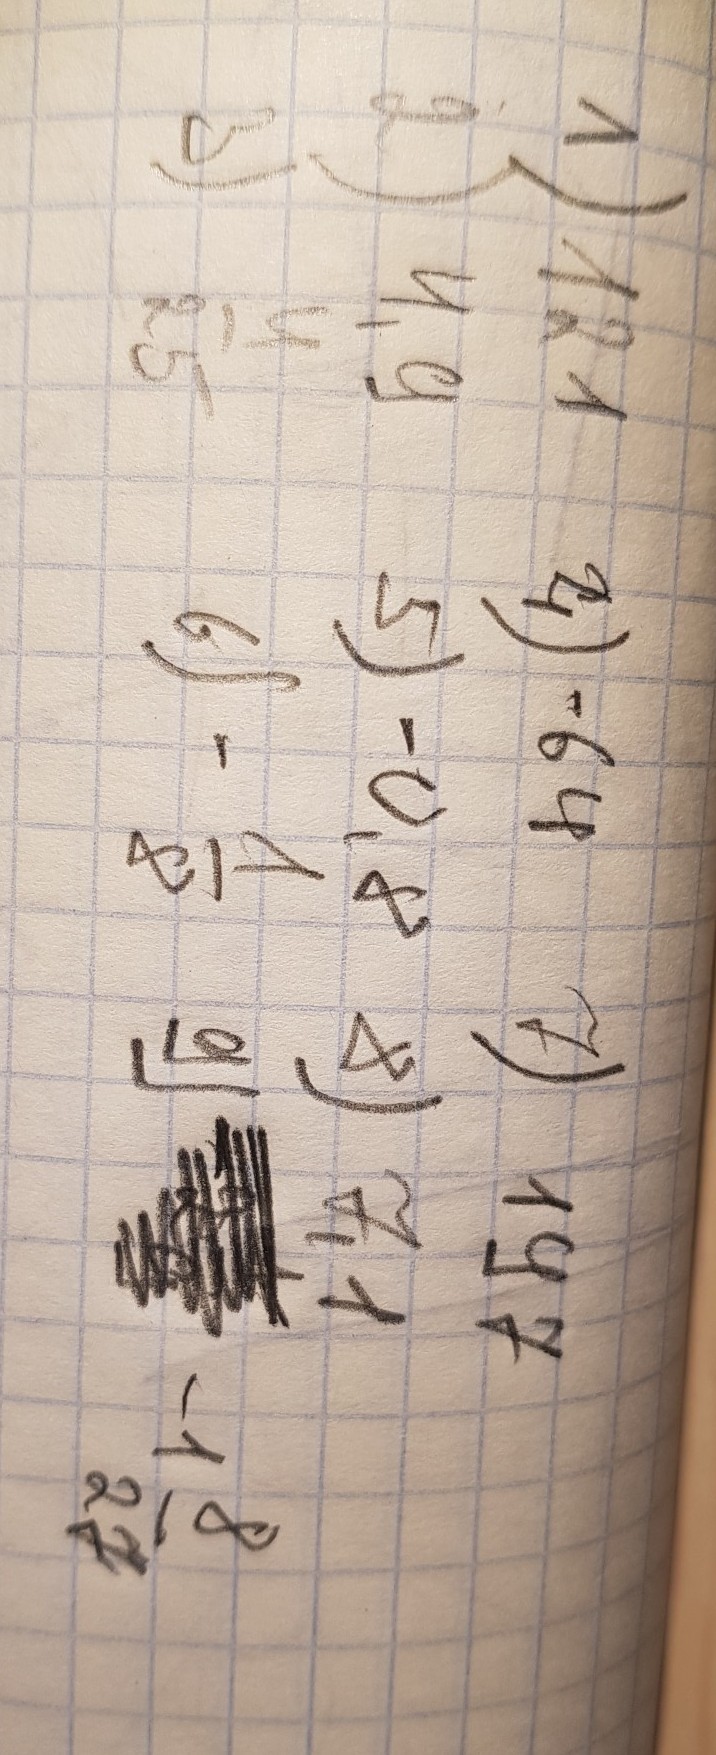 1) 121 4) -64 7) 197
2) 4,9 5) -0,8 8) 7,1
3) 4/25 6) -1/8 9) -1 8/27